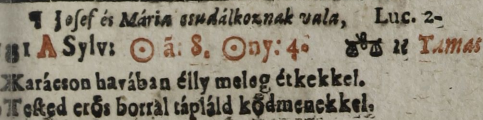 ¶ Josef és Mária osudálkoznak vala, Luc. 2-
31 A Sylv: ☉ ā: 8. ☉ny: 4. ♎♎ 12 Tamas
Karácson havában élly meleg étkekkel.
Tested erős borral tápláld ködmenekkel.